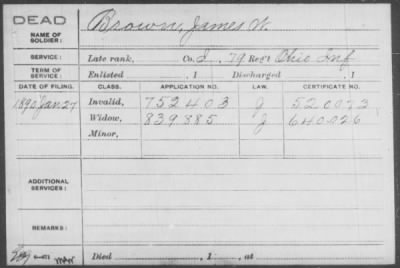 DEAD
NAME OF SOLDIER:
Brown, James W.
SERVICE: Late rank, Co. I, 79 Reg't Ohio Inf
TERM OF SERVICE: Enlisted , 1 Discharged , 1
DATE OF FILING. CLASS. APPLICATION NO. LAW. CERTIFICATE NO.
1890 Jan 27 Invalid, 752403 J 520073
Widow, 839885 J 640026
Minor,
ADDITIONAL SERVICES:
REMARKS:
Died , 1 , at